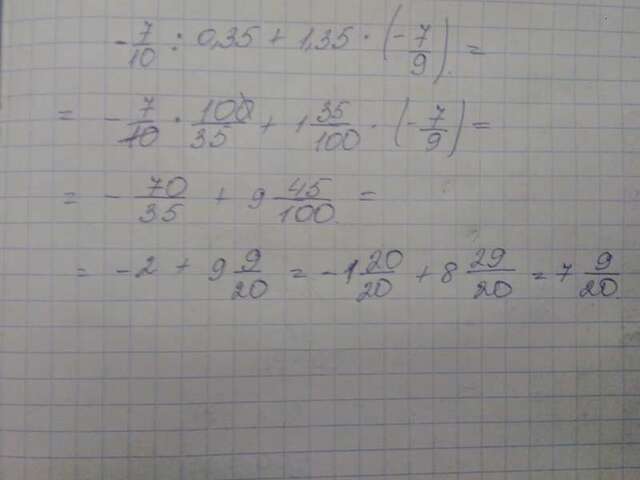 -7/10 : 0,35 + 1,35 · (-7/9) =
= -7/10 · 100/35 + 1 35/100 · (-7/9) =
= -70/35 + 9 45/100 =
= -2 + 9 9/20 = -1 20/20 + 8 29/20 = 7 9/20